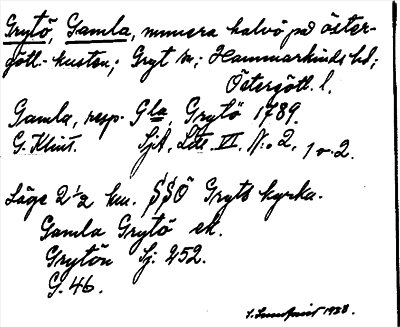 Grytö, Gamla, numera halvö på öster-
götl.-kusten; Gryt sn; Hammarkinds hd;
Östergötl. l.
Gamla, resp. Gla Grytö 1789.
G. Klint. Sjk. Ltt. VI, N:o 2, 1 o. 2.
Läge 2 1/2 km. SSÖ Gryts kyrka.
Gamla Grytö ek.
Grytön Sj. 252.
G. 46.
1938.